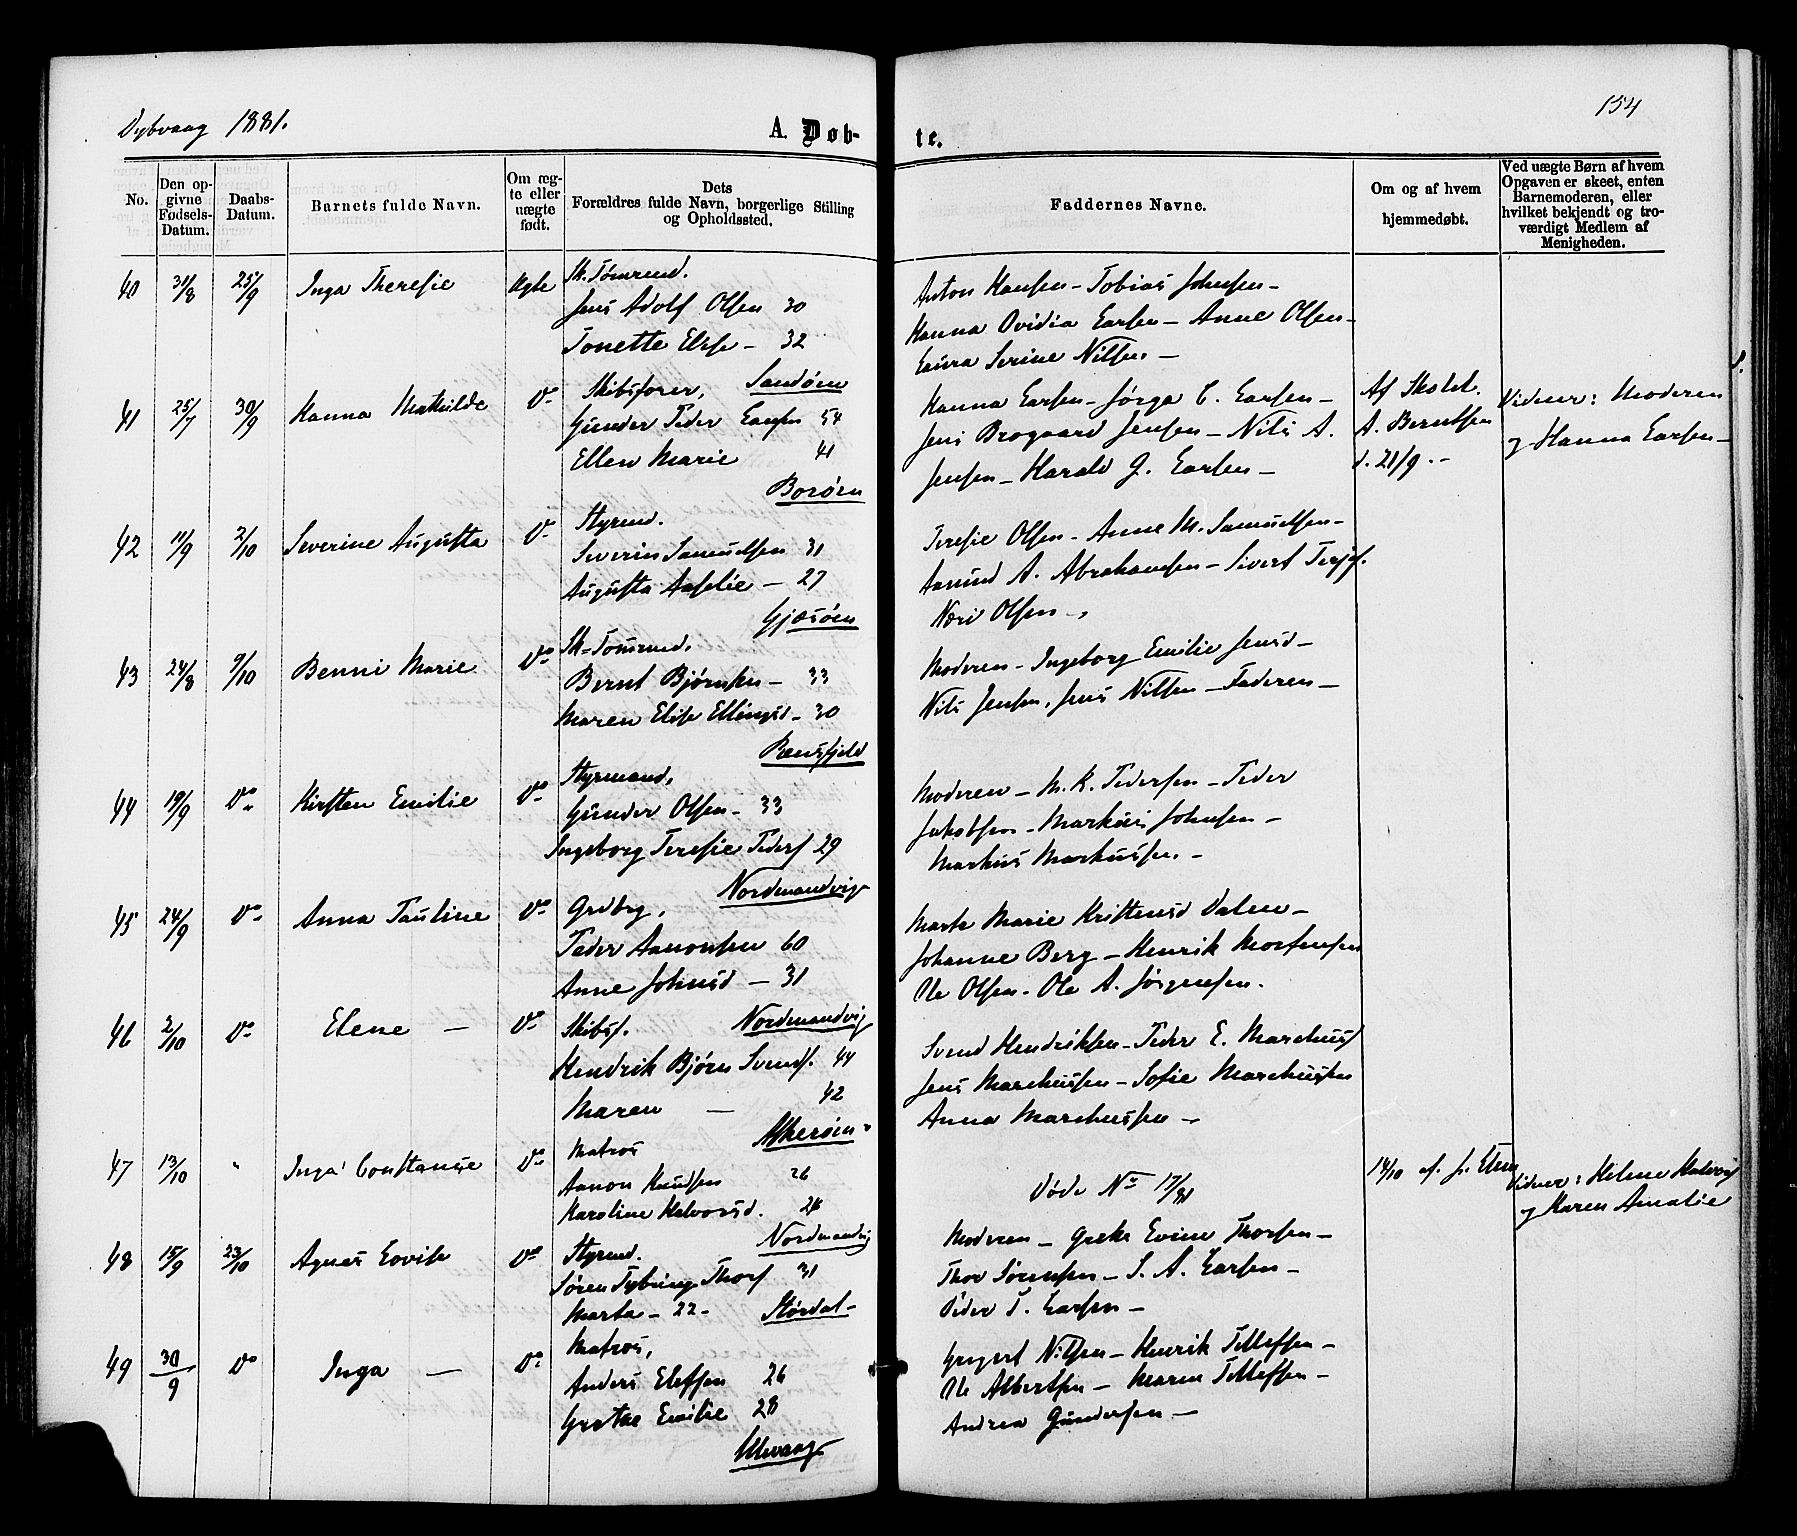 Dybvaag 1881.
A. Døb-
te.
154
No.
Den op-
givne
Fødsels-
Datum.
Daabs-
Datum.
Barnets fulde Navn.
Om æg-
te eller
uægte
født.
Dets
Forældres fulde Navn, borgerlige Stilling
og Opholdssted.
Faddernes Navne.
Om og af hvem
hjemmedøbt.
Ved uægte Børn af hvem
Opgaven er skeet, enten
Barnemoderen, eller
hvilket bekjendt og tro-
værdigt Medlem af
Menigheden.
40 31/8 25/9 Inga Theresie Ægte Sk. Tømrmd.
Jens Adolf Olsen 30
Tonette Elise - 32
Sandøen
Anton Hansen - Tobias Johnsen -
Hanna Ovidia Larsen - Anne Olsen -
Laura Serine Nilsen -
41 25/7 30/9 Hanna Mathilde Do Skibsfører,
Gunder Peder Larsen 54
Ellen Marie 41
Borøen
Hanna Larsen - Jørga C. Larsen -
Jens Brogaard Jensen - Nils A.
Jensen - Harald G. Larsen -
Af Skolel.
A. Berntsen
d. 21/9. -
Vidner: Moderen
og Hanna Larsen -
42 11/9 2/10 Severine Augusta Do Styrmd.
Severin Samuelsen 31
Augusta Aselie - 27
Gjæsøen
Teresie Olsen - Anne M. Samuelsen -
Aanund A. Abrahamsen - Sivert Terjes.
Neri Olsen -,
43 24/8 9/10 Benni Marie Do Sk-Tømrmd.
Bernt Bjørnsen - 33
Maren Elise Ellingsd - 30
Ramsfjeld
Moderen - Ingeborg Emilie Jensd -
Nils Jensen, Jens Nilsen - Faderen -
44 19/9 Do Kirsten Emilie Do Styrmand,
Gunder Olsen - 33
Ingeborg Teresie Peders 29
Nordmandvig
Moderen - M. K. Pedersen - Peder
Jakobsen - Markus Johnsen -
Markus Markussen. -
45 24/9 Do Anna Pauline Do Grdbrg,
Peder Aanonsen 60
Anne Johnsd - 31
Nordmandvig
Marte Marie Kristensd Dalen -
Johanne Berg - Henrik Mortensen
Ole Olsen - Ole A. Jørgensen.
46 2/10 Do Elene - Do Skibsf.
Hendrik Bjørn Svends. 44
Maren - 42
Alkerøen
Svend Hendriksen - Peder E. Marchuss
Jens Marchussen - Sofie Marchussen
Anna Marchussen -
47 13/10 " Inga Constanse Do Matros
Aanon Knudsen 26
Karoline Halvorsd. 28
Nordmandvig
Døde No 17/81
14/10 af J. Elene
Vidner: Helene Halvors
og Karen Amalie
48 15/9 23/10 Agnes Lovise Do Styrmd.
Søren Tybring Thors 31
Marta - 22 -
Størdal -
Moderen - Grete Evine Thorsen -
Thor Sørensen - S. A. Larsen -
Peder T. Larsen -
49 30/9 Do Inga - Do Matros,
Anders Elefsen 26
Grethe Emilie 28
Ulevaag
Gregert Nilsen - Henrik Tellefsen -
Ole Albertsen - Maren Tellefsen -
Andrea Gundersen -